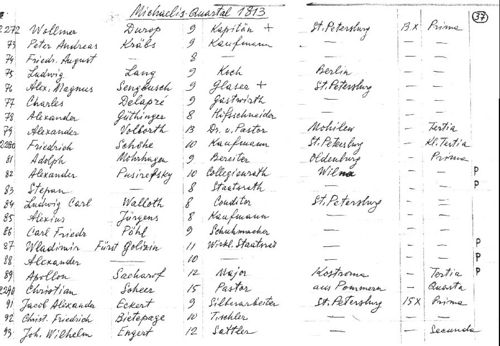 Michaelis-Quartal 1813 37
2272 Wollmer Durop 9 Kapitän + St. Petersburg 13 X Prima
73 Peter Andreas Kräbs 9 Kaufmann — — —
74 Friedr. August — 8 — — — —
75 Ludwig Lang 9 Koch Berlin — —
76 Alex. Magnus Sengbusch 9 Glaser + St. Petersburg — —
77 Charles Delapré 9 Gastwirth — — —
78 Alexander Güthinger 8 — — —
79 Alexander Volborth 13 Dr. u. Pastor Mohilew — Tertia
2280 Friedrich Schöhe 10 Kaufmann St. Petersburg — Kl. Tertia
81 Adolph Mohrhagen 9 Bereiter Oldenburg — Prima
82 Alexander Pusirefsky 10 Collegienrath Wilna — — P
83 Stepan — 8 Staatsrath — — — P
84 Ludwig Carl Walloth 8 Conditor St. Petersburg — —
85 Alexius Jürgens 8 Kaufmann — — —
86 Carl Friedr. Pöhl 9 Schuhmacher — — —
87 Wladimir Fürst Golizin 11 Wirkl. Staatsrat — — — P
88 Alexander — 10 — — — — P
89 Apollon Sacharof 12 Major Kostroma — Tertia P
2290 Christian Scheer 15 Pastor aus Pommern — Quarta
91 Jacob Alexander Eckert 9 Silberarbeiter St. Petersburg 15 X Prima
92 Christ. Friedrich Bietepage 10 Tischler — — —
93 Joh. Wilhelm Engert 12 Sattler — — Secunda